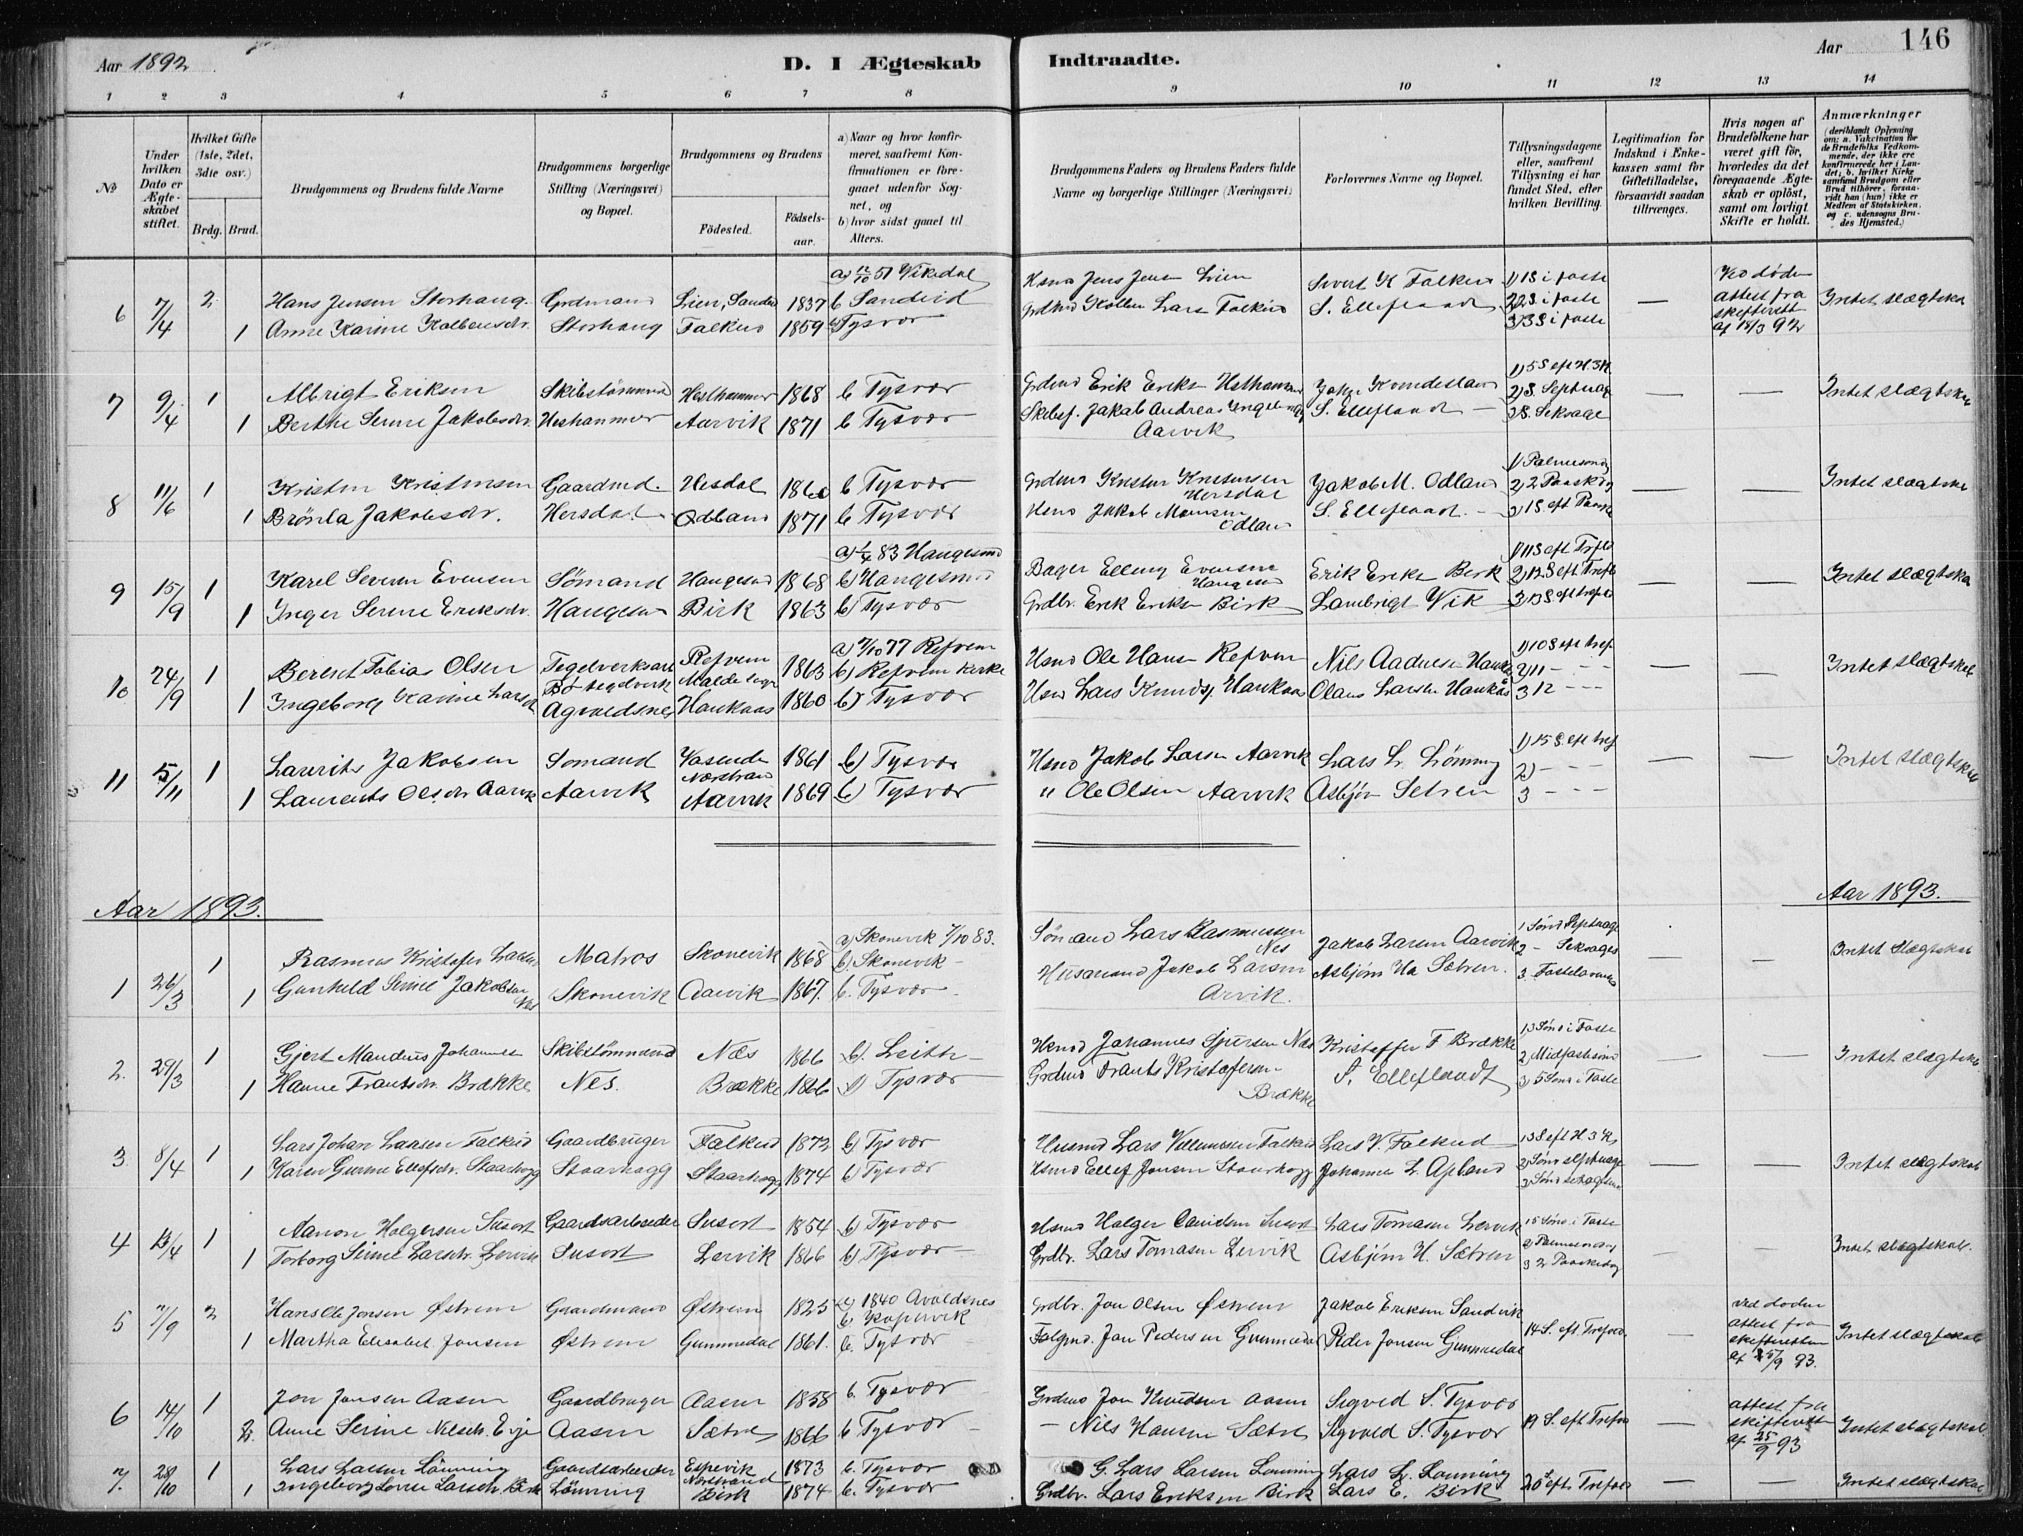 Aar 1892
D. I Ægteskab
Indtraadte.
Aar
146
1 2 3 4 5 6 7 8 9 10 11 12 13 14
No
Under hvilken Dato er Ægteskabet stiftet.
Hvilket Gifte (1ste, 2det, 3die osv.)
Brdg. Brud.
Brudgommens og Brudens fulde Navne
Brudgommens borgerlige Stilling (Næringsvei) og Bopæl.
Brudgommens og Brudens
Fødested.
Fødsels-aar.
a) Naar og hvor konfirmeret, saafremt Konfirmationen er foregaaet udenfor Sognet, og
b) hvor sidst gaaet til Alters.
Brudgommens Faders og Brudens Faders fulde Navne og borgerlige Stillinger (Næringsvei)
Forlovernes Navne og Bopæl.
Tillysningsdagene eller, saafremt Tillysning ei har fundet Sted, efter hvilken Bevilling.
Legitimation for Indskud i Enkekassen samt for Giftetilladelse, forsaavidt saadan tiltrænges.
Hvis nogen af Brudefolkene har været gift før, hvorledes da det foregaaende Ægteskab er opløst, samt om lovligt Skifte er holdt.
Anmærkninger
(deriblandt Oplysning om: a. Vakcination for de Brudefolks Vedkommende, der ikke ere konfirmerede her i Landet; b. hvilket Kirkesamfund Brudgom eller Brud tilhører, forsaavidt han (hun) ikke er Medlem af Statskirken, og c. udensogns Brudes Hjemsted.)
6 7/4 2 Hans Jensen Storhaug Grdmand Lien, Sandeid 1837 a) 12/10 51 Vikedal b Sandeid Hsmd Jens Jensen Lien Sivert K Falkeid 1) 1 S i faste — Ved døden attest fra skifteret af 18/3 92 Intet slægtskab
1 Anne Karine Kolbensdr. Storhaug Falkeid 1859 Tysvær Lars Falkeid S. Elleflaadt 2) 2 S. i faste 3) 3 S i faste
7 9/4 1 Albrigt Eriksen Skibstømmermd Hesthammer 1868 b Tysvær Grdmd Erik Eriksen 1) 5 S eft H 3 K 2) S. Septuag — — Intet slægtskab
1 Berthe Serine Jakobsdr. Hesthammer Aarvik 1871 b Tysvær Skibsf. Jakob Andreas Aarvik S. Elleflaadt — 3 S. Seksage
8 11/6 1 Kristen Kristensen Gaardmd. Hesdal 1860 b Tysvær Grdmd Kristen Kristensen Hersdal Jakob M. Odland 1) Palmesøndag 2) 2 Paaskdg — — Intet slægtskab
1 Brønla Jakobsdr. Hersdal Odland 1871 b Tysvær Jakob Monsen Odland S. Elleflaadt. — 3) 1 S eft Paaske
9 15/9 1 Karel Severin Evensen Sømand Haugesund 1868 a) 1/4 83 Haugesund b) Haugesund Bager Elling Evensen Haugesund Erik Eriksen Birk 1) 11 S eft Trefo 2) 12 S eft Trefo — — Intet slægtskab
1 Inger Serine Eriksdr. Haugesund Birk 1863 b) Tysvær Grdbr. Erik Eriksen Birk Lambrigt Vik 3) 13 S eft trefo
10 24/9 1 Berent Tobias Olsen Tegelverksarb Refvem 1863 a) 7/10 77 Refvem b) Refvem kirke Hsmd Ole Hansen Refvem Nils Aadnesen Haukaas 1) 10 S eft tref 2) 11 - - - — — Intet slægtskab
1 Ingeborg Karine Larsdr Bø tegelverk Agvaldsnes Haukaas 1860 b) Tysvær Hsmd Lars Knudsen Haukaas Olaus Larsen Haukaas 3 12 - - -
11 5/11 1 Laurits Jakobsen Sømand Vasende Nærstrand 1861 b) Tysvær Hsmd Jakob Larsen Aarvik Lars L. Lønning 1) 15 S. eft tref 2) - - - Intet slægtskab
1 Laurents Olsdr Aarvik Aarvik Aarvik 1869 b) Tysvær " Ole Olsen Aarvik Asbjørn Setren 3 - - -
Aar 1893.
Aar 1893.
1 26/3 1 Rasmus Kristofer Larsen Matros Skonevik 1868 a) Skonevik 7/10 83. b). Skonevik - Sømand Lars Rasmussen Nes Jakob Larsen Aarvik 1 Sønd Septuage 2 - Seksages — — Intet slægtskab
1 Gunhild Serine Jakobsen Nes Skonevik Aarvik 1867. b. Tysvær Husmand Jakob Larsen Arvik. Asbjørn Ha Sætren. 3. Fastelavns
2. 29/3 1 Gjert Mandius Johannes Skibstømmermd Næs 1866 b). Leith - Hsmd Johannes Gjersen Næs Kristoffer F Brække 1 3 Sønd i Faste 2 Midfastesønd — — Intet slægtskab
1 Hanne Frantsdr. Brække Nes. Brække 1866 b) Tysvær Grdmd Frants Kristofersen Brække S. Elleflaadt 3) 5 Sønd i Faste
3. 8/4 1 Lars Johan Larsen Falkeid Gaardbruger Falkeid 1872 b) Tysvær Husmd Lars Villumsen Falkeid Lars V. Falkeid 1 3 S eft H 3 K 2) Sønd septuage — — Intet slægtskab
1 Karen Gurine Ellefsdr. Staarhogg Staarhagg Staarhogg 1874 b) Tysvær Hsmd Ellef Jonsen Staarhogg Johannes L. Apeland
4 13/4 1 Aanon Holgersen Susort Gaardsarbeider Susort 1854 b) Tysvær Hsmd Holger Susort Lars Tomasen Lervik 1 5 Sønd i Faste 2 Palmesøndag — — Intet slægtskab.
1 Torborg Serine Larsdr. Lervik Susort Lervik 1866 b) Tysvær Grdbr. Lars Tomasen Lervik Asbjørn H. Sætren 3 2 Paaskedag
5 7/9 2 Hans Ole Jonsen Østrem Gaardmand Østrem 1825 a) 1840 Avaldsnes b. Kopervik Grdbr. Jon Olsen Østrem Jakob Eriksen Sandvik 14 S. eft Trefo — ved døden attest fra skifteretten af 25/9 93. Intet slægtskab
1 Martha Elisabet Jansen Østrem Gummedal 1861. b. Tysvær Jan Pedersen Gummedal Peder Jansen Gummedal
6 14/10 1 Jon Jonsen Aasen Gaardbruger Aasen 1858 b. Tysvær Grdmd Jon Knudsen Aasen Sigvald S. Tysvær 19 S. eft Trefo — attest fra skifteretten af 25/9 93 Intet slægtskab.
2. Anne Serine Nilsdr. Evje Aasen Sætre 1866 b. Tysvær — Nils Hansen Sætre Sigvald S. Tysvær
7. 28/10 1 Lars Larsen Lønning Gaardsarbeider Espevik Nærstrand 1873 b. Tysvær G. Lars Larsen Lønning Lars L. Lønning 20 S efts Trefo — — Intet slægtskab
1 Ingeborg Larsdr. Birk Lønning Birk 1874 b. Tysvær Grdbr. Lars Eriksen Birk Lars E. Birk